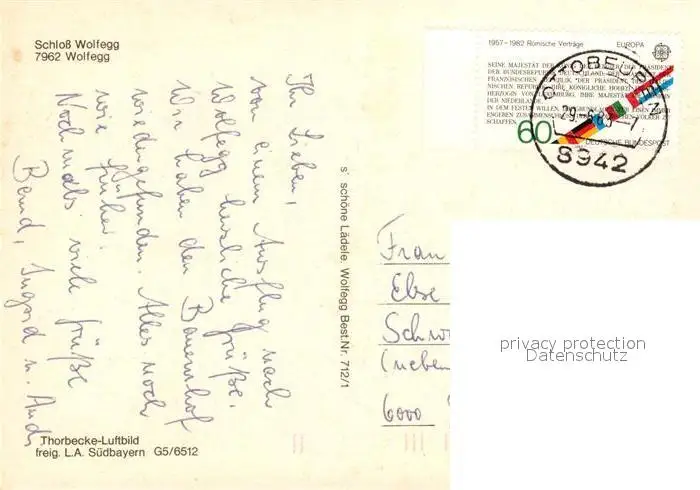 Schloß Wolfegg
7962 Wolfegg
Ihr Lieben,
von einem Ausflug nach
Wolfegg herzliche Grüße.
Wir haben den Bauernhof
wiedergefunden. Alles noch
wie früher.
Nochmals viele Grüße
Bernd, Ingrid u. Andi
Thorbecke-Luftbild
freig. L.A. Südbayern G5/6512
s' schöne Lädele. Wolfegg Best.Nr. 712/1
1957-1982 Römische Verträge EUROPA
SEINE MAJESTÄT DER
DER BUNDESREPUBLIK DEUTSCHLAND, DER
FRANZÖSISCHEN REPUBLIK, DER PRÄSIDENT
NISCHEN REPUBLIK, IHRE KÖNIGLICHE HOHEIT
HERZOGIN VON LUXEMBURG, IHRE MAJESTÄT
DER NIEDERLANDE,
IN DEM FESTEN WILLEN, GRUNDLAGEN FÜR EINEN
ENGEREN ZUSAMMENSCHLUSS VÖLKER ZU
SCHAFFEN,
60
DEUTSCHE BUNDESPOST
8942
Frau
Else
Schw
(neben
6000
privacy protection
Datenschutz